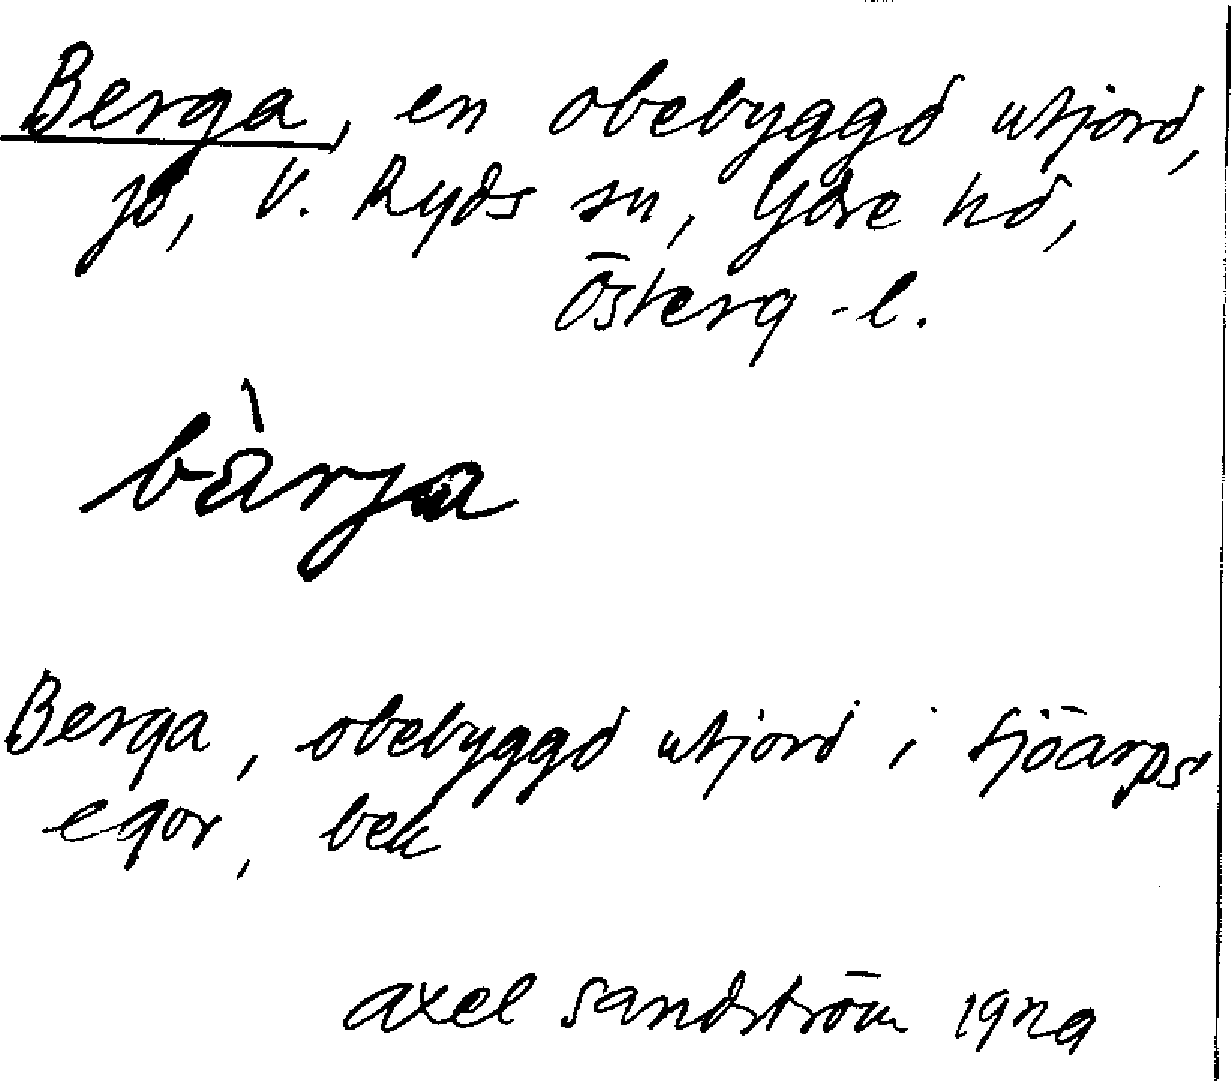 Berga, en obebyggd utjord,
jo, V. Ryds sn, Ydre hd,
Österg-l.
bàrja
Berga, obebyggd utjord i Sjöarps
egor, bek
axel sandström 1929